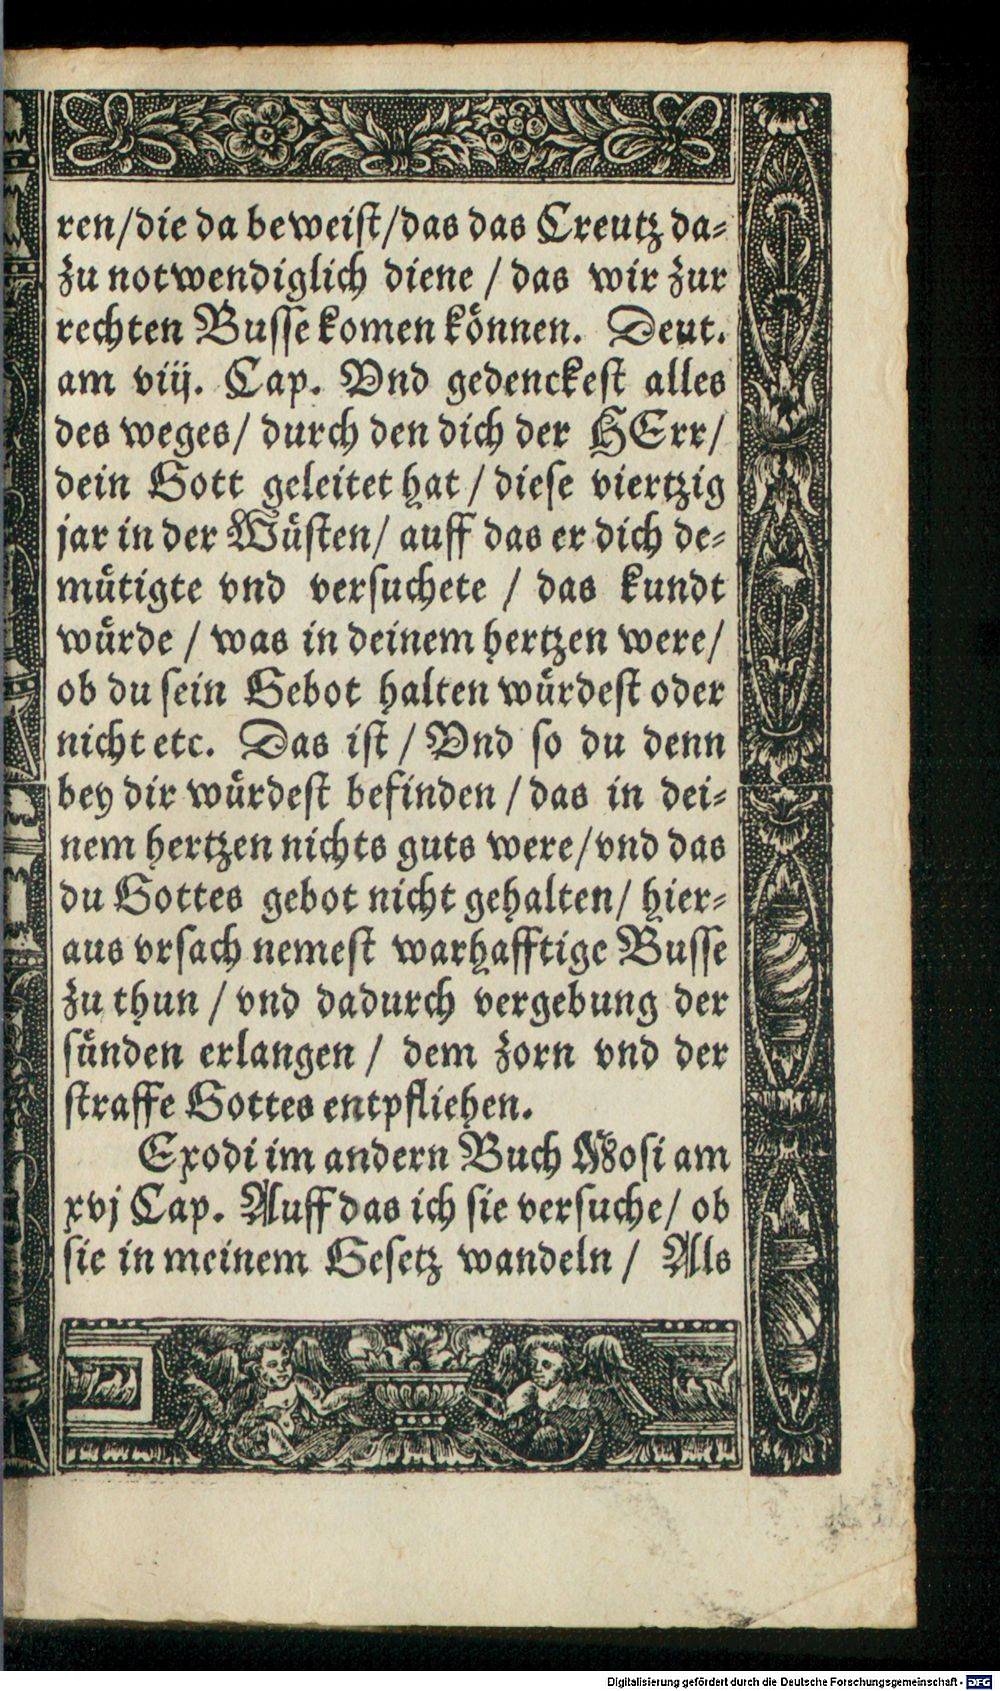 ren/die da beweist/das das Creutz da-
zu notwendiglich diene / das wir zur
rechten Busse komen können. Deut.
am viij. Cap. Vnd gedenckest alles
des weges/ durch den dich der HErr/
dein Gott geleitet hat / diese viertzig
jar in der Wüsten/ auff das er dich de-
mütigte vnd versuchete / das kundt
würde / was in deinem hertzen were/
ob du sein Gebot halten würdest oder
nicht etc. Das ist / Vnd so du denn
bey dir würdest befinden / das in dei-
nem hertzen nichts guts were/vnd das
du Gottes gebot nicht gehalten/ hier-
aus vrsach nemest warhafftige Busse
zu thun / vnd dadurch vergebung der
sünden erlangen / dem zorn vnd der
straffe Gottes entpfliehen.
Exodi im andern Buch Mosi am
xvj Cap. Auff das ich sie versuche/ ob
sie in meinem Gesetz wandeln / Als
Digitalisierung gefördert durch die Deutsche Forschungsgemeinschaft - DFG